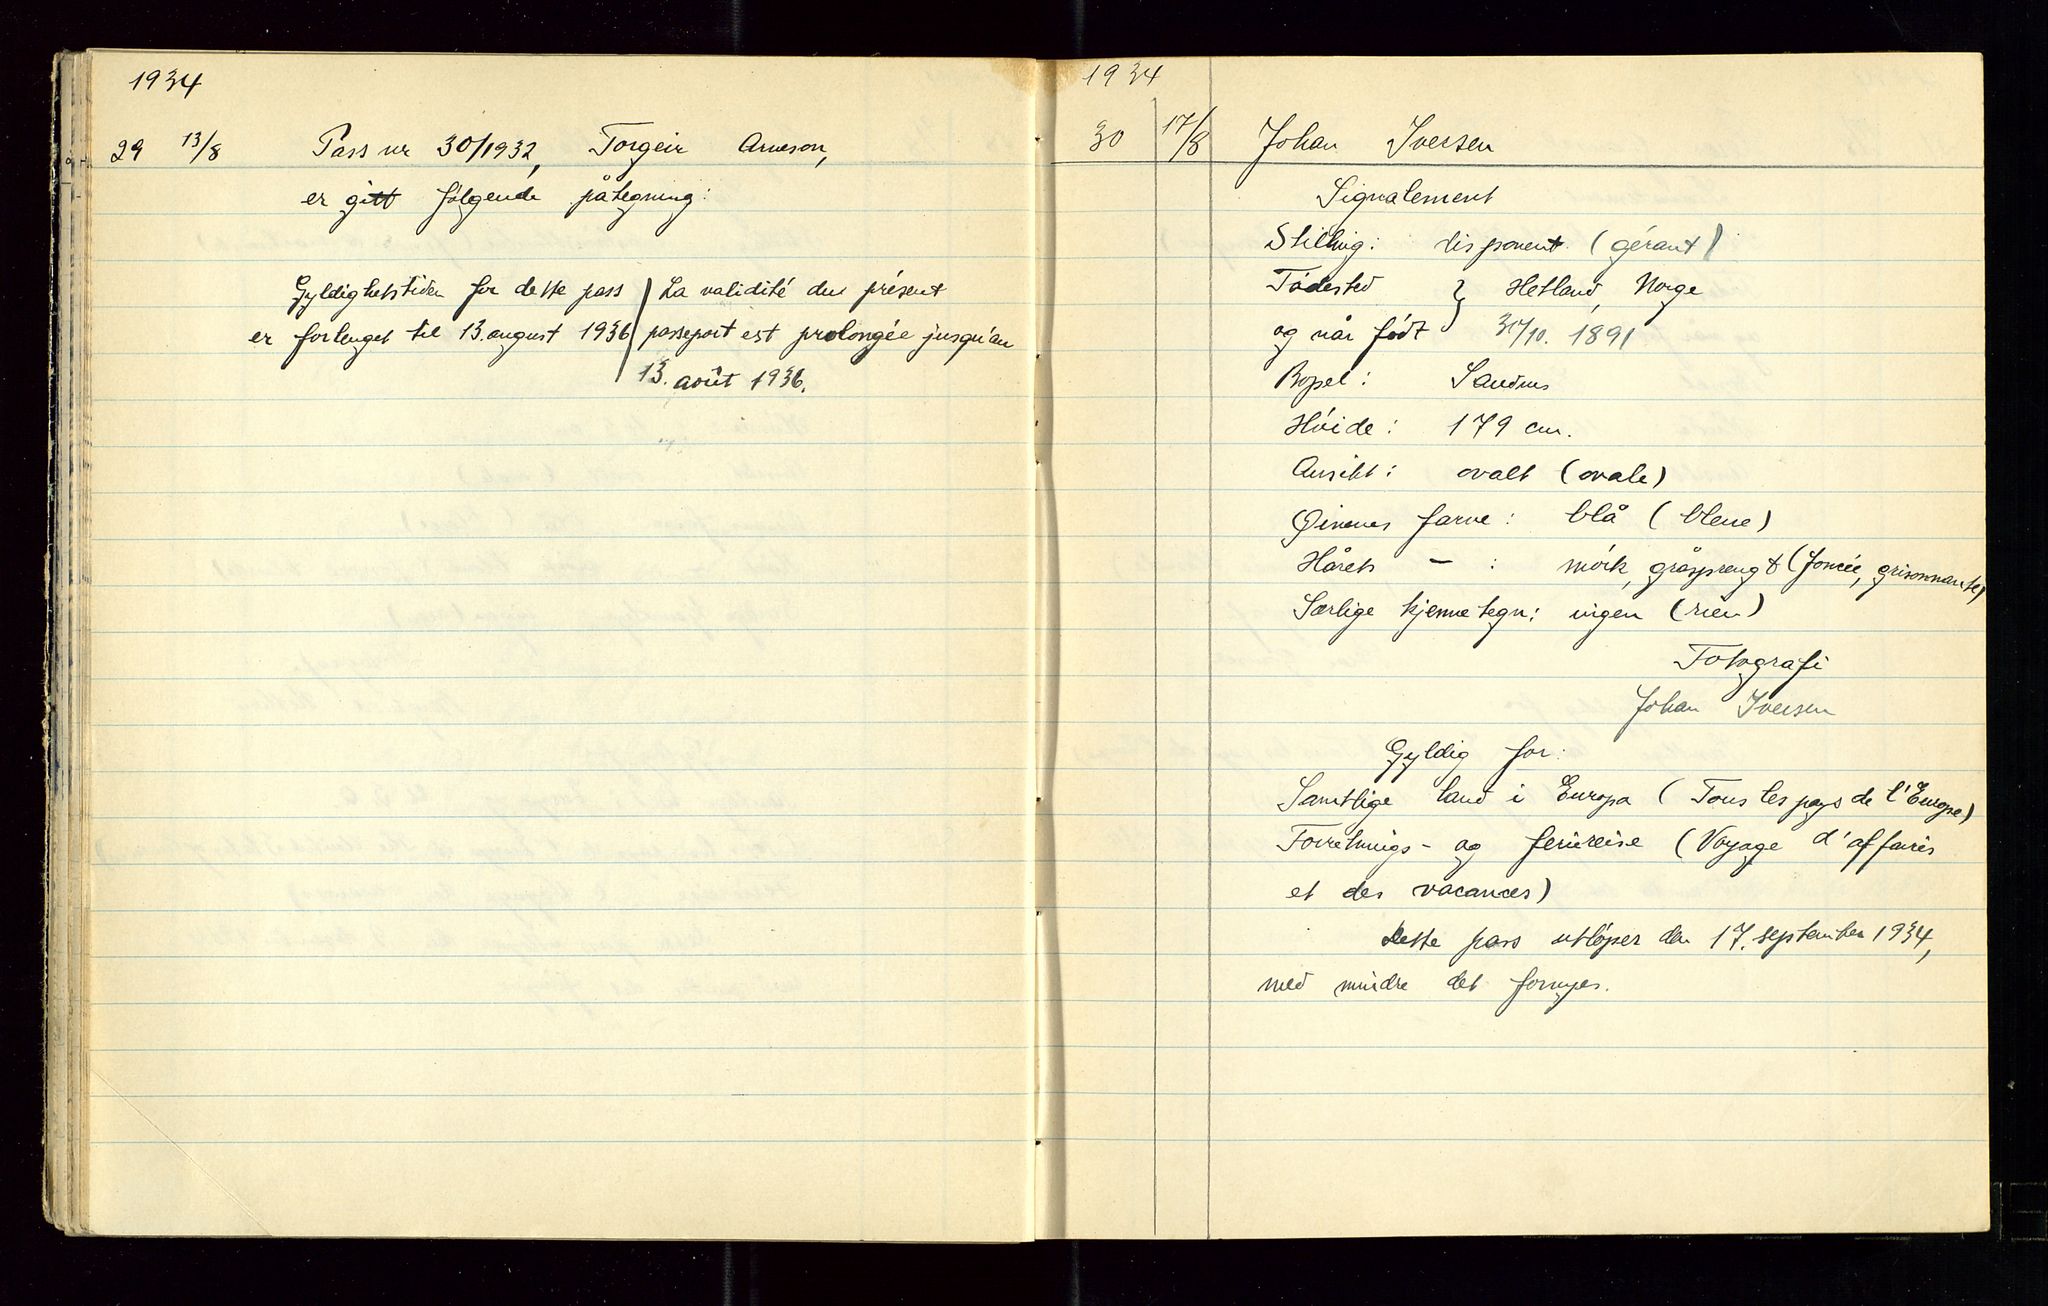 1934
29 13/8 Pass nr 30/1932, Torgeir Arneson,
er gitt følgende påtegning:
Gyldighetstiden for dette pass
er forlenget til 13. august 1936
La validité du présent
passeport est prolongée jusqu'au
13. août 1936.
1934
30 17/8 Johan Iversen
Signalement
Stilling: disponent (gérant)
Fødested } Hetland, Norge
og når født 31/10. 1891
Bopel: Sandnes
Høide: 179 cm.
Ansikt: ovalt (ovale)
Øinenes farve: blå (bleue)
Hårets — : mørk, gråsprengt (foncée, grisonnante)
Særlige kjennetegn: ingen (rien)
Fotografi
Johan Iversen
Gyldig for:
Samtlige land i Europa (Tous les pays de l'Europe)
Forretnings- og feriereise (Voyage d'affaires
et des vacances)
Dette pass utløper den 17. september 1934,
med mindre det fornyes.